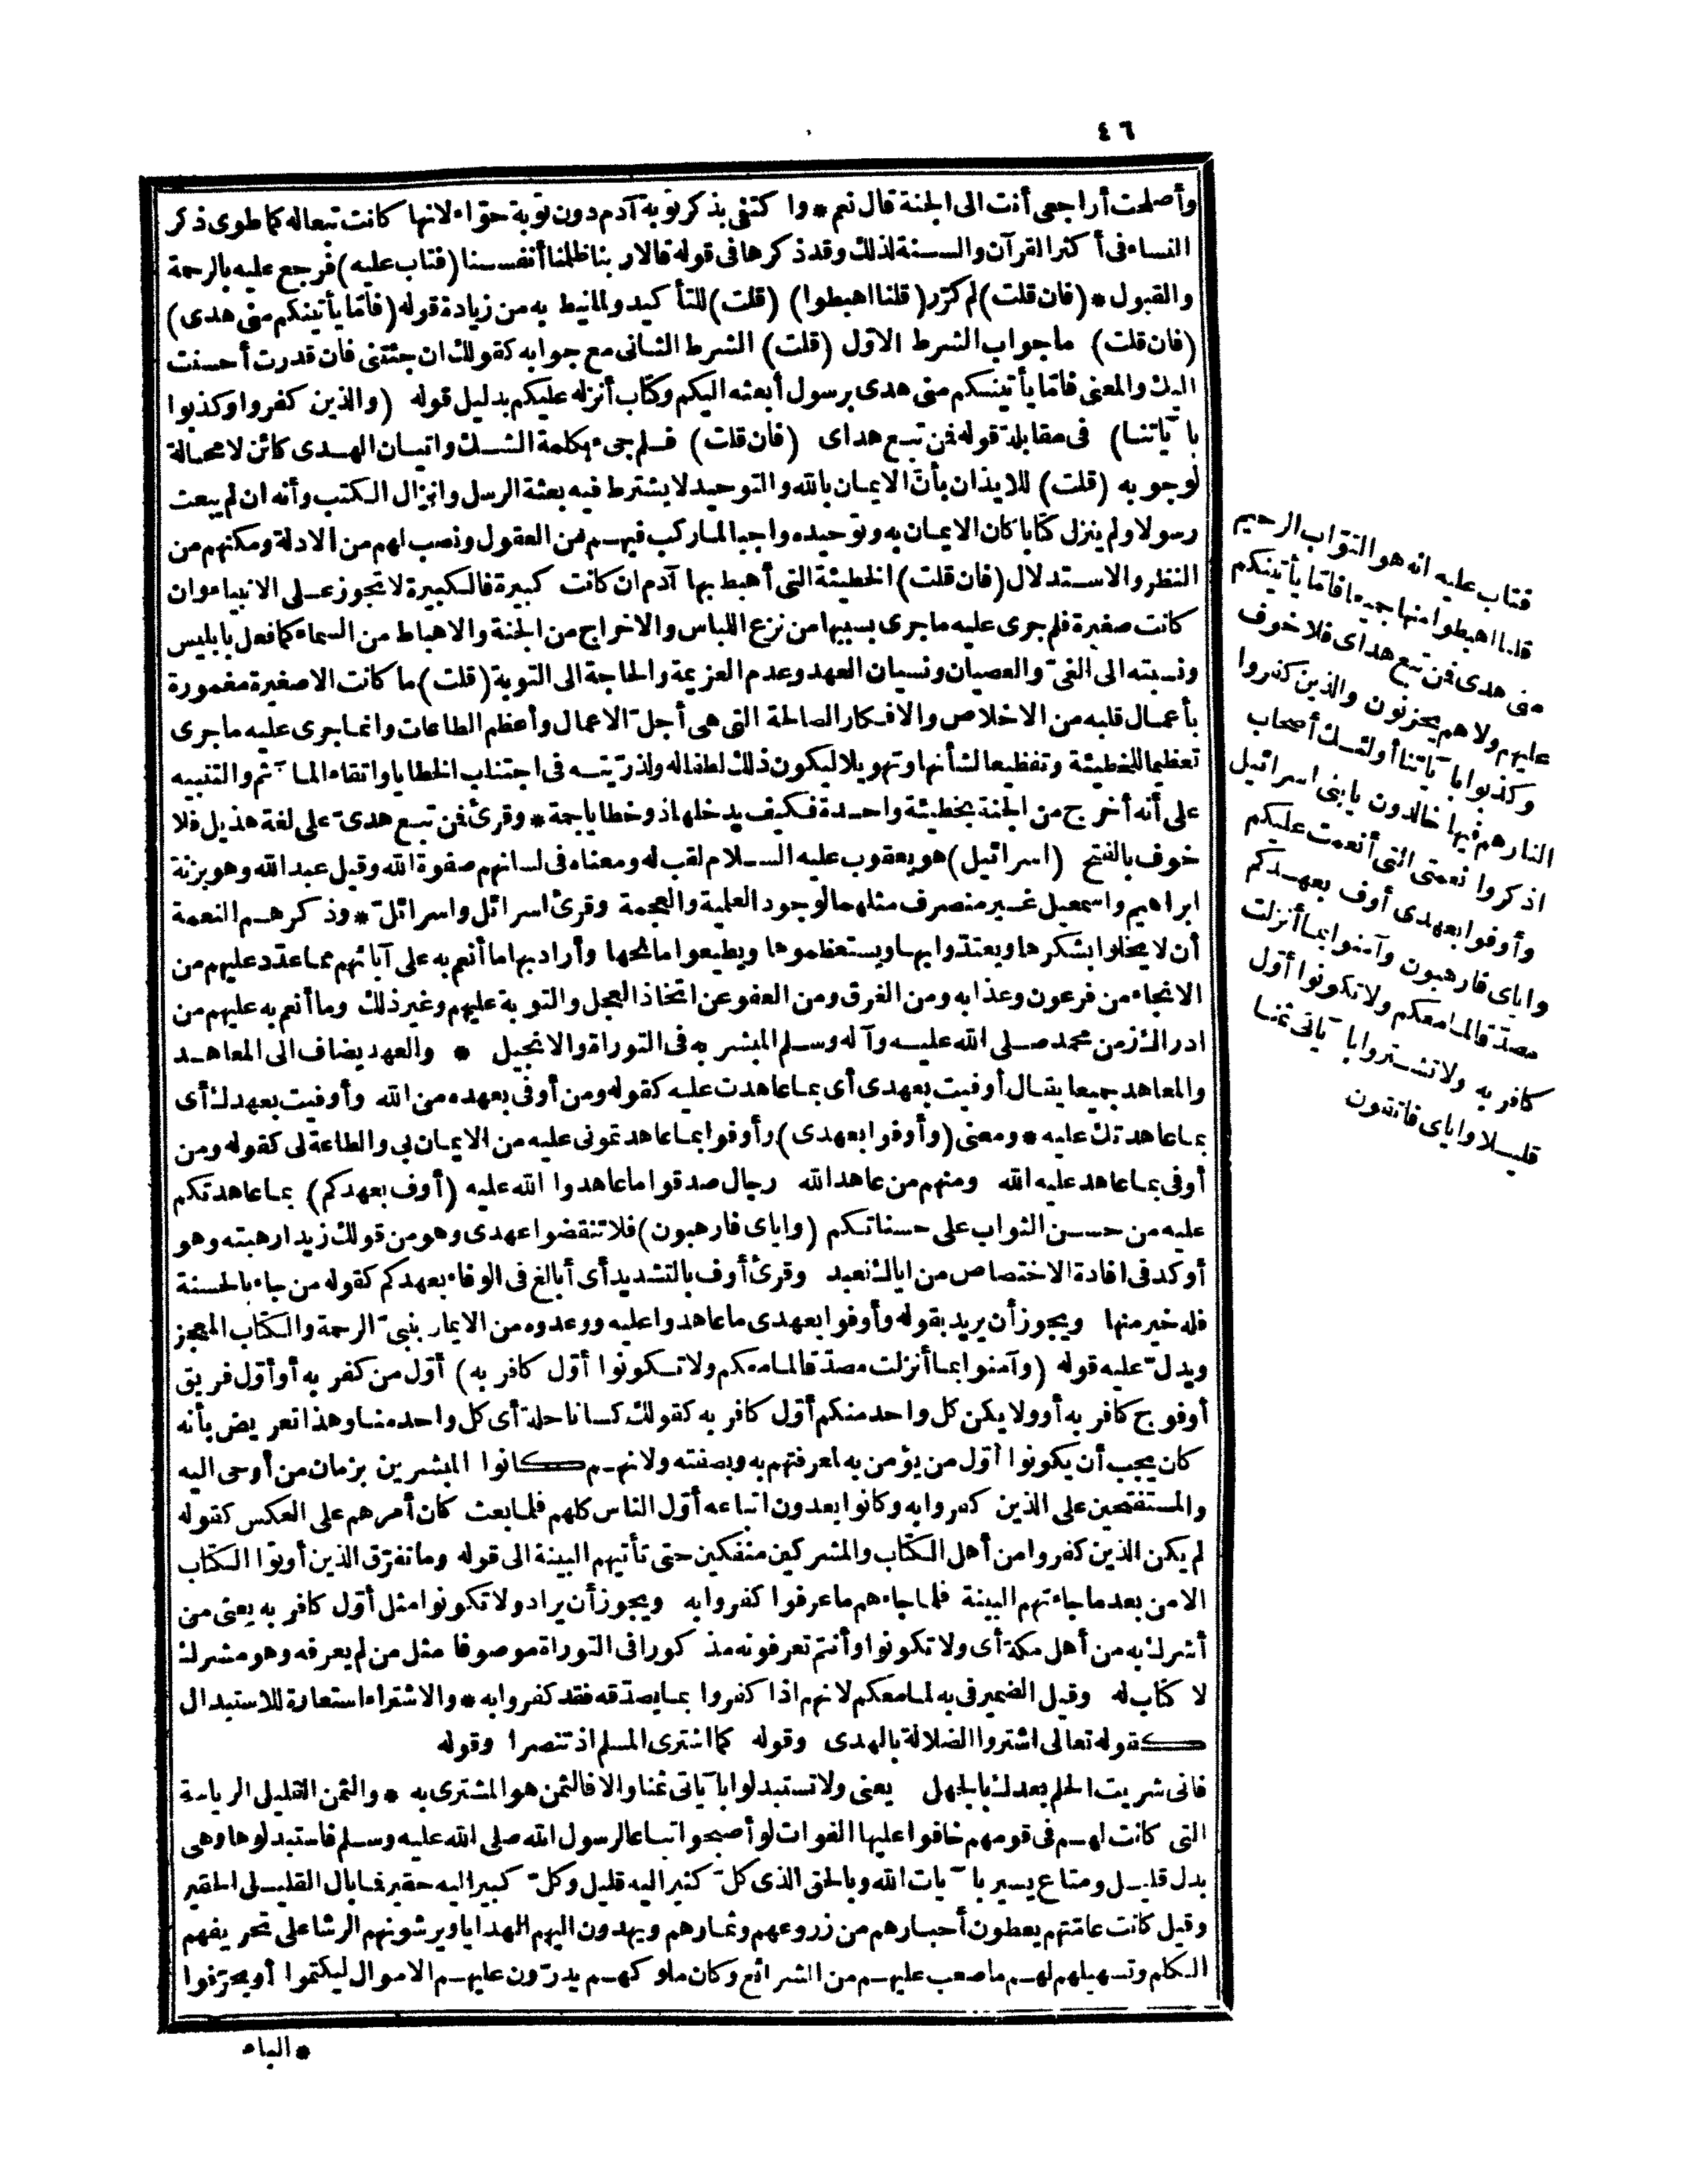 ٤٦
وأصلحت أراجعي أنت الى الجنة قال نعم * واكتفى بذكر توبة آدم دون توبة حوّاء لانها كانت تبعاله كما طوى ذكر
النساء في أكثر القرآن والسنة لذلك وقد ذكرها في قوله قالا ربنا ظلمنا أنفسنا (فتاب عليه) فرجع عليه بالرحمة
والقبول * (فان قلت) لم كرّر (قلنا اهبطوا) (قلت) للتأكيد ولما نيط به من زيادة قوله (فامّا يأتينكم منى هدى)
(فان قلت) ما جواب الشرط الاوّل (قلت) الشرط الثانى مع جوابه كقولك ان جئتنى فان قدرت أحسنت
اليك والمعنى فامّا يأتينكم منى هدى برسول أبعثه اليكم وكتاب أنزله عليكم بدليل قوله (والذين كفروا وكذبوا
بآياتنا) فى مقابلة قوله فمن تبع هداى (فان قلت) فلم جىء بكلمة الشك واتيان الهدى كائن لا محالة
لوجوبه (قلت) للايذان بأنّ الايمان بالله والتوحيد لا يشترط فيه بعثة الرسل وانزال الكتب وأنه ان لم يبعث
رسولا ولم ينزل كتابا كان الايمان به وتوحيده واجبا لما ركب فيهم من العقول ونصب لهم من الادلة ومكنهم من
النظر والاستدلال (فان قلت) الخطيئة التى أهبط بها آدم ان كانت كبيرة فالكبيرة لا تجوز على الانبياء وان
كانت صغيرة فلم جرى عليه ما جرى بسببها من نزع اللباس والاخراج من الجنة والاهباط من السماء كما فعل بابليس
ونسبته الى الغىّ والعصيان ونسيان العهد وعدم العزيمة والحاجة الى التوبة (قلت) ما كانت الا صغيرة مغمورة
بأعمال قلبه من الاخلاص والافكار الصالحة التى هى أجلّ الاعمال وأعظم الطاعات وانما جرى عليه ما جرى
تعظيما للخطيئة وتفظيعا لشأنها وتهويلا ليكون ذلك لطفا له ولذرّيته فى اجتناب الخطايا واتقاء المآثم والتنبيه
على أنه أخرج من الجنة بخطيئة واحدة فكيف يدخلها ذو خطايا جمة * وقرئ فمن تبع هدىّ على لغة هذيل فلا
خوف بالفتح (اسرائيل) هو يعقوب عليه السلام لقب له ومعناه فى لسانهم صفوة الله وقيل عبد الله وهو بزنة
ابراهيم واسمعيل غير منصرف مثلهما لوجود العلمية والعجمة وقرئ اسرائل واسرائلّ * وذكرهم النعمة
أن لا يخلوا بشكرها ويعتدّوا بها ويستعظموها ويطيعوا مانحها وأراد بها ما أنعم به على آبائهم مما عدّد عليهم من
الانجاء من فرعون وعذابه ومن الغرق ومن العفو عن اتخاذ العجل والتوبة عليهم وغير ذلك وما أنعم به عليهم من
ادراك زمن محمد صلى الله عليه وآله وسلم المبشر به فى التوراة والانجيل * والعهد يضاف الى المعاهد
والمعاهد جميعا يقال أوفيت بعهدى أى بما عاهدت عليه كقوله ومن أوفى بعهده من الله وأوفيت بعهدك أى
بما عاهدتك عليه * ومعنى (وأوفوا بعهدى) وأوفوا بما عاهدتمونى عليه من الايمان بى والطاعة لى كقوله ومن
أوفى بما عاهد عليه الله ومنهم من عاهد الله رجال صدقوا ما عاهدوا الله عليه (أوف بعهدكم) بما عاهدتكم
عليه من حسن الثواب على حسناتكم (واياى فارهبون) فلا تنقضوا عهدى وهو من قولك زيدا رهبته وهو
أوكد فى افادة الاختصاص من اياك نعبد وقرئ أوف بالتشديد أى أبالغ فى الوفاء بعهدكم كقوله من جاء بالحسنة
فله خير منها ويجوز أن يريد بقوله وأوفوا بعهدى ما عاهدوا عليه ووعدوه من الايمان بنبىّ الرحمة والكتاب المعجز
ويدلّ عليه قوله (وآمنوا بما أنزلت مصدّقا لما معكم ولا تكونوا أوّل كافر به) أوّل من كفر به أو أوّل فريق
أو فوج كافر به أو ولا يكن كل واحد منكم أوّل كافر به كقولك كسانا حلة أى كل واحد منا وهذا تعريض بأنه
كان يجب أن يكونوا أوّل من يؤمن به لمعرفتهم به وبصفته ولانهم كانوا المبشرين بزمان من أوحى اليه
والمستفتحين على الذين كفروا به وكانوا يعدون اتباعه أوّل الناس كلهم فلما بعث كان أمرهم على العكس كقوله
لم يكن الذين كفروا من أهل الكتاب والمشركين منفكين حتى تأتيهم البينة الى قوله وما تفرّق الذين أوتوا الكتاب
الا من بعد ما جاءتهم البينة فلما جاءهم ما عرفوا كفروا به ويجوز أن يراد ولا تكونوا مثل أوّل كافر به يعنى من
أشرك به من أهل مكة أى ولا تكونوا وأنتم تعرفونه مذكورا فى التوراة موصوفا مثل من لم يعرفه وهو مشرك
لا كتاب له وقيل الضمير فى به لما معكم لانهم اذا كفروا بما يصدّقه فقد كفروا به * والاشتراء استعارة للاستبدال
كقوله تعالى اشتروا الضلالة بالهدى وقوله كما اشترى المسلم اذ تنصرا وقوله
فانى شريت الحلم بعدك بالجهل يعنى ولا تستبدلوا بآياتى ثمنا والا فالثمن هو المشترى به * والثمن القليل الرياسة
التى كانت لهم فى قومهم خافوا عليها الفوات لو أصبحوا تباعا لرسول الله صلى الله عليه وسلم فاستبدلوها وهى
بدل قليل ومتاع يسير بآيات الله وبالحق الذى كلّ كثير اليه قليل وكلّ كبير اليه حقير فما بال القليل الحقير
وقيل كانت عامّتهم يعطون أحبارهم من زروعهم وثمارهم ويهدون اليهم الهدايا ويرشونهم الرشا على تحريفهم
الكلم وتسهيلهم لهم ما صعب عليهم من الشرائع وكان ملوكهم يدرّون عليهم الاموال ليكتموا أو يحرّفوا
فتاب عليه انه هو التوّاب الرحيم
قلنا اهبطوا منها جميعا فامّا يأتينكم
منى هدى فمن تبع هداى فلا خوف
عليهم ولا هم يحزنون والذين كفروا
وكذبوا بآياتنا أولئك أصحاب
النار هم فيها خالدون يا بنى اسرائيل
اذكروا نعمتى التى أنعمت عليكم
وأوفوا بعهدى أوف بعهدكم
واياى فارهبون وآمنوا بما أنزلت
مصدّقا لما معكم ولا تكونوا أوّل
كافر به ولا تشتروا بآياتى ثمنا
قليلا واياى فاتقون
* الباء